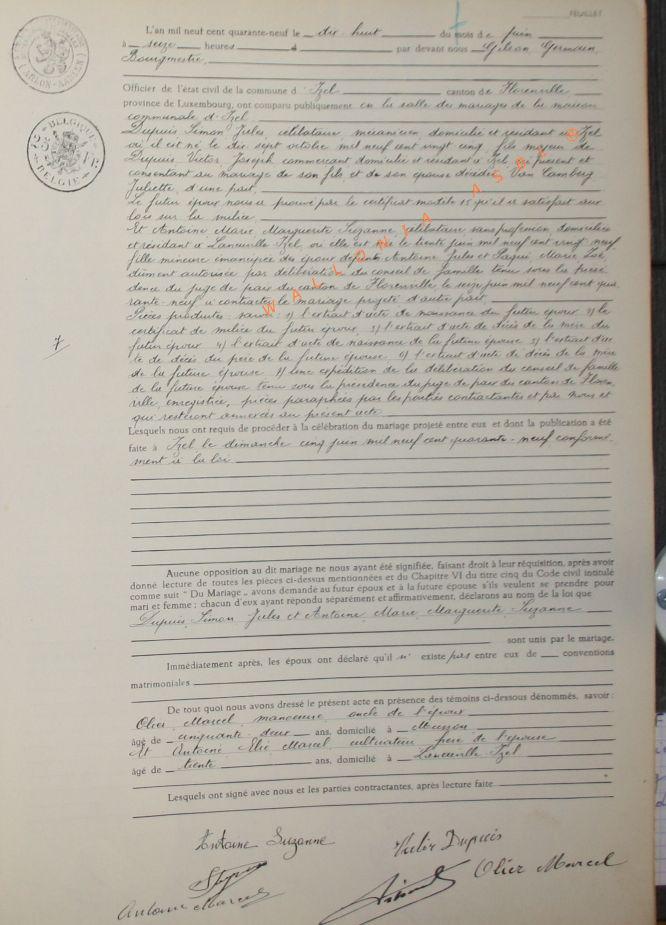 FEUILLET
L'an mil neuf cent quarante-neuf le dix-huit du mois de juin
à seize heures à par devant nous Gilson, Germain,
Bourgmestre,
Officier de l'état civil de la commune d' Izel canton de Florenville
province de Luxembourg, ont comparu publiquement en la salle des mariages de la maison
communale d'Izel
Dupuis Simon Jules, célibataire, mécanicien domicilié et résidant à Izel
où il est né le dix sept octobre mil neuf cent vingt cinq, fils majeur de
Dupuis Victor Joseph commerçant domicilié et résidant à Izel, ici présent et
consentant au mariage de son fils, et de son épouse décédée Van Camberg
Juliette, d'une part
Le futur époux nous a prouvé par le certificat modèle 15 qu'il a satisfait aux
lois sur la milice
Et Antoine Marie Marguerite Suzanne, célibataire sans profession domiciliée
et résidant à Laneuville Izel, où elle est née le trente juin mil neuf cent vingt neuf
fille mineure émancipée des époux défunts Antoine Jules et Paqui Marie Zoé,
dûment autorisée par délibération du conseil de famille tenu sous la prési
dence du juge de paix du canton de Florenville le seize juin mil neuf cent qua
rante-neuf à contracter le mariage projeté d'autre part
Pièces produites savoir: 1) l'extrait d'acte de naissance du futur époux 2) le
certificat de milice du futur époux 3) l'extrait d'acte de décès de la mère du
futur époux 4) l'extrait d'acte de naissance de la future épouse 5) l'extrait d'ac
te de décès du père de la future épouse 6) l'extrait d'acte de décès de la mère
de la future épouse 7) Une expédition de la délibération du conseil de famille
de la future épouse tenu sous la présidence du juge de paix du canton de Floren
ville, enregistrée, pièces paraphées par les parties contractantes et par nous et
qui resteront annexées au présent acte
Lesquels nous ont requis de procéder à la célébration du mariage projeté entre eux et dont la publication a été
faite à Izel le dimanche cinq juin mil neuf cent quarante-neuf conformé
ment à la loi
Aucune opposition au dit mariage ne nous ayant été signifiée, faisant droit à leur réquisition, après avoir
donné lecture de toutes les pièces ci-dessus mentionnées et du Chapitre VI du titre cinq du Code civil intitulé
comme suit " Du Mariage „ avons demandé au futur époux et à la future épouse s'ils veulent se prendre pour
mari et femme ; chacun d'eux ayant répondu séparément et affirmativement, déclarons au nom de la loi que
Dupuis, Simon Jules et Antoine Marie Marguerite Suzanne
sont unis par le mariage.
Immédiatement après, les époux ont déclaré qu'il n' existe pas entre eux de conventions
matrimoniales
De tout quoi nous avons dressé le présent acte en présence des témoins ci-dessous dénommés, savoir :
Olier, Marcel, manoeuvre, oncle de l'époux
âgé de cinquante-deux ans, domicilié à Musson
Et Antoine Elie Marcel, cultivateur frère de l'épouse
âgé de trente ans, domicilié à Laneuville Izel
Lesquels ont signé avec nous et les parties contractantes, après lecture faite
Antoine Suzanne
Victor Dupuis
Olier Marcel
Antoine Marcel
7
BELGIQUE
BELGIE
WALLONIA ASBL ©